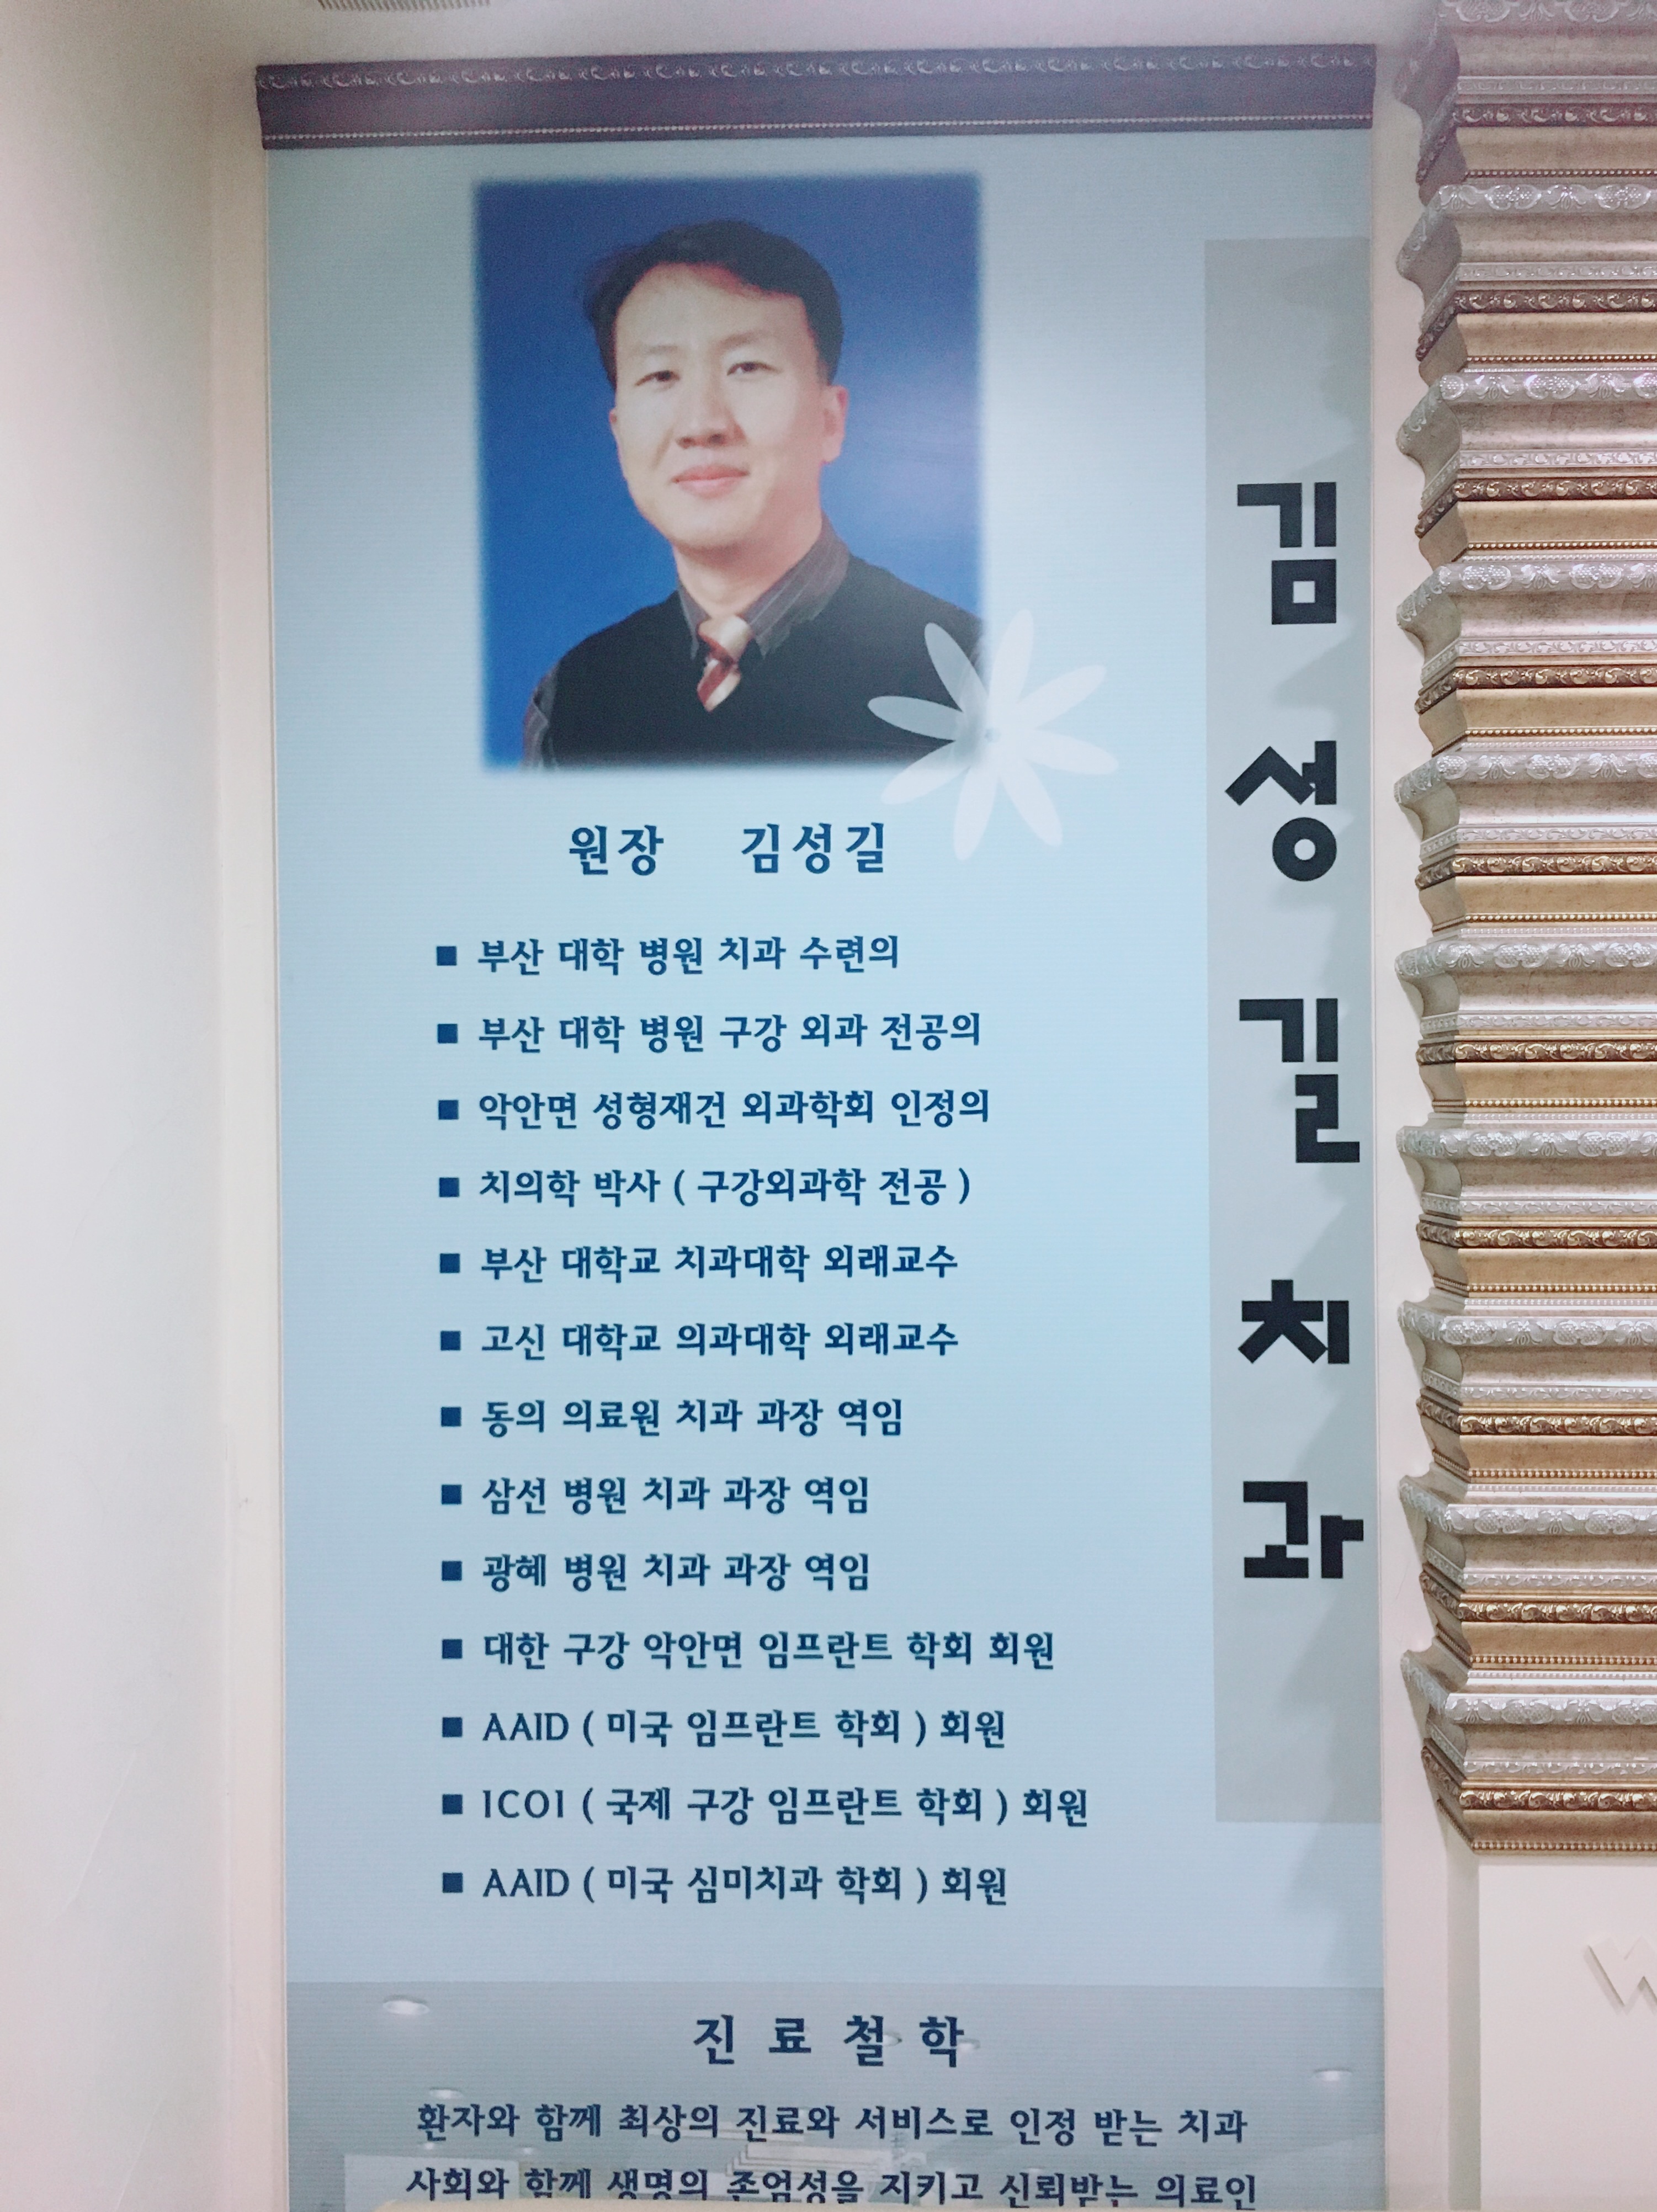 원장 김성길
■ 부산 대학 병원 치과 수련의
■ 부산 대학 병원 구강 외과 전공의
■ 악안면 성형재건 외과학회 인정의
■ 치의학 박사 ( 구강외과학 전공 )
■ 부산 대학교 치과대학 외래교수
■ 고신 대학교 의과대학 외래교수
■ 동의 의료원 치과 과장 역임
■ 삼선 병원 치과 과장 역임
■ 광혜 병원 치과 과장 역임
■ 대한 구강 악안면 임프란트 학회 회원
■ AAID ( 미국 임프란트 학회 ) 회원
■ ICOI ( 국제 구강 임프란트 학회 ) 회원
■ AAID ( 미국 심미치과 학회 ) 회원
진료철학
환자와 함께 최상의 진료와 서비스로 인정 받는 치과
사회와 함께 생명의 존엄성을 지키고 신뢰받는 의료인
김성길치과